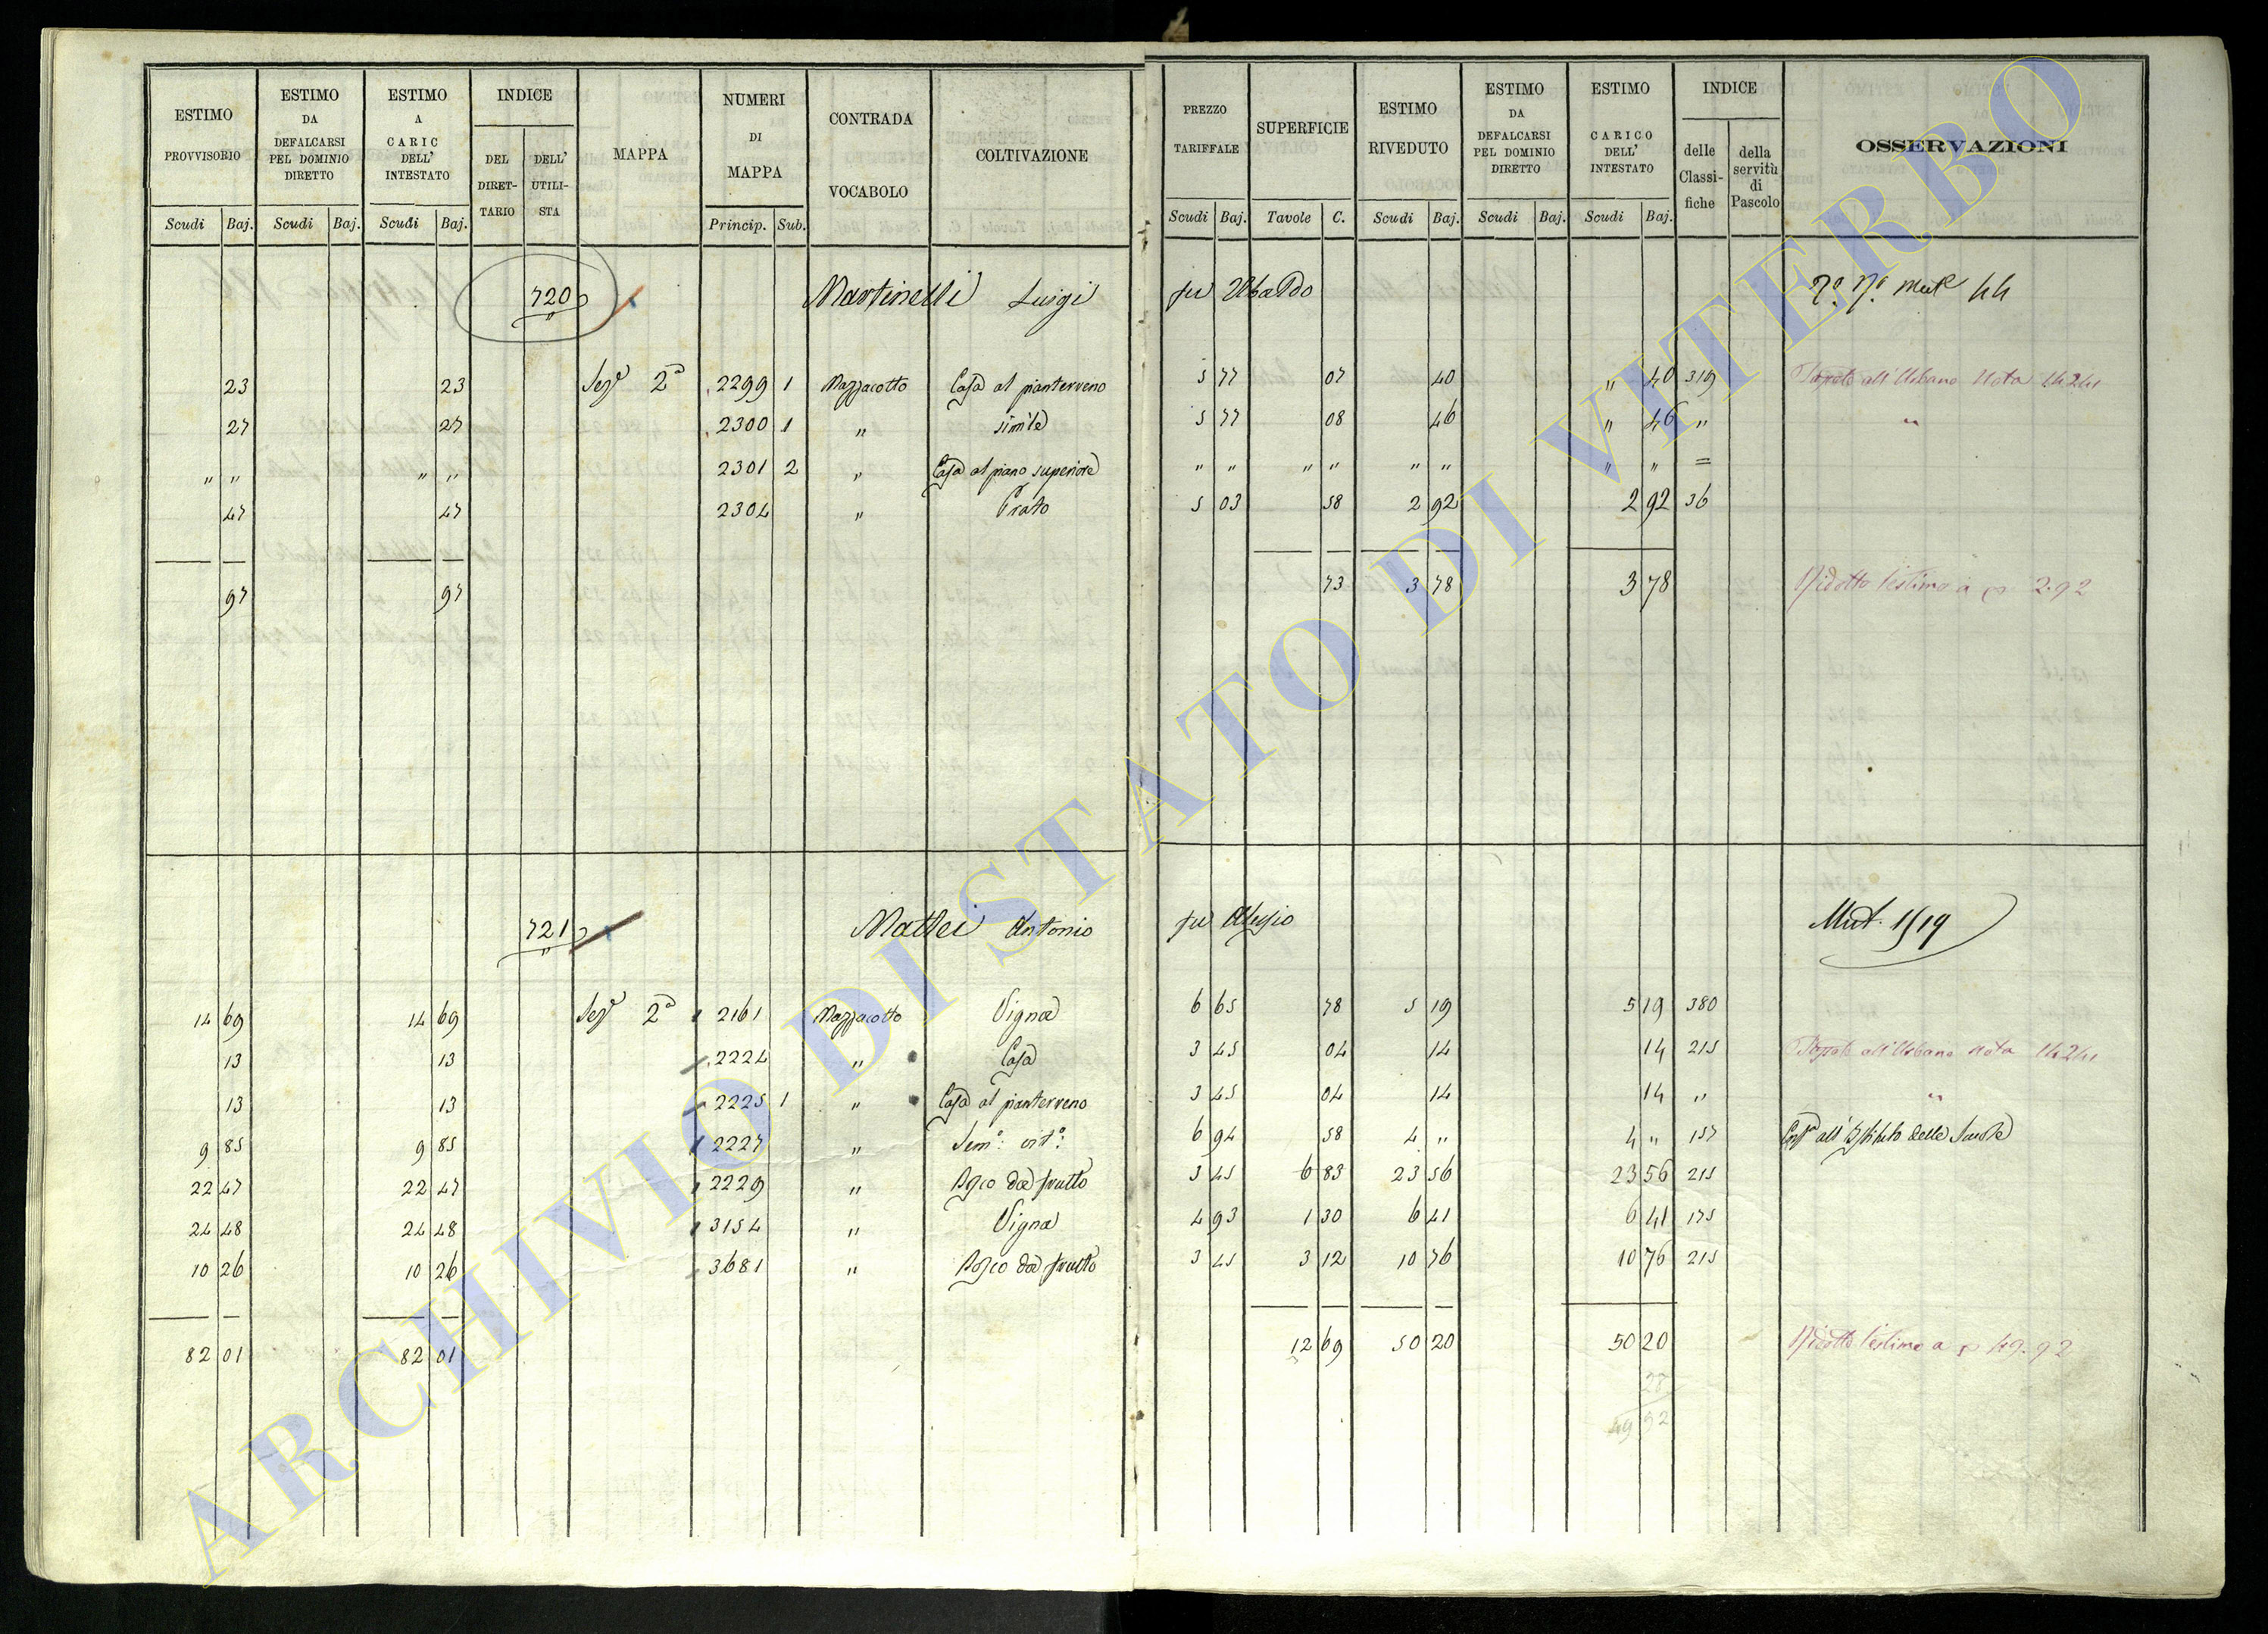 ESTIMO PROVVISORIO | ESTIMO DA DEFALCARSI PEL DOMINIO DIRETTO | ESTIMO A CARIC DELL' INTESTATO | INDICE DEL DIRETTARIO | DELL' UTILISTA | MAPPA | NUMERI DI MAPPA | CONTRADA VOCABOLO | COLTIVAZIONE | PREZZO TARIFFALE | SUPERFICIE | ESTIMO RIVEDUTO | ESTIMO DA DEFALCARSI PEL DOMINIO DIRETTO | ESTIMO CARICO DELL' INTESTATO | INDICE delle Classifiche | della servitù di Pascolo | OSSERVAZIONI
Scudi Baj. | Scudi Baj. | Scudi Baj. | Princip. Sub. | Scudi Baj. | Tavole C. | Scudi Baj. | Scudi Baj. | Scudi Baj.
720 Martinelli Luigi fu Ubaldo 44
23 | 23 | Seze 2a | 2299 1 | Mazzacotto | Casa al pianterreno | 5 77 | 07 | 40 | " 40 | 319 | all'Urbano Nota 14241
27 | 27 | 2300 1 | " | simile | 5 77 | 08 | 46 | " 46 | " | "
" " | " " | 2301 2 | " | Casa al piano superiore | " " | " " | " " | " " | =
47 | 47 | 2304 | " | Prato | 5 03 | 58 | 2 92 | 2 92 | 36
97 | 97 | 73 | 3 78 | 3 78 | Ridotto l'estimo a 2.92
721 Mattei Antonio fu Alesio Mut. 1519
14 69 | 14 69 | Seze 2a | 2161 | Mazzacotto | Vigna | 6 65 | 78 | 5 19 | 5 19 | 380
13 | 13 | 2224 | " | Casa | 3 45 | 04 | 14 | 14 | 215 | all'Urbano Nota 14241
13 | 13 | 2225 1 | " | Casa al pianterreno | 3 45 | 04 | 14 | 14 | " | "
9 85 | 9 85 | 2227 | " | Semo: vito: | 6 94 | 58 | 4 " | 4 " | 157 | all' delle
22 47 | 22 47 | 2229 | " | da frutto | 3 45 | 6 83 | 23 56 | 23 56 | 215
24 48 | 24 48 | 3154 | " | Vigna | 4 93 | 1 30 | 6 41 | 6 41 | 175
10 26 | 10 26 | 3681 | " | da frutto | 3 45 | 3 12 | 10 76 | 10 76 | 215
82 01 | 82 01 | 12 69 | 50 20 | 50 20 | Ridotto l'estimo a 49.92
28
49 92
ARCHIVIO DI STATO DI VITERBO